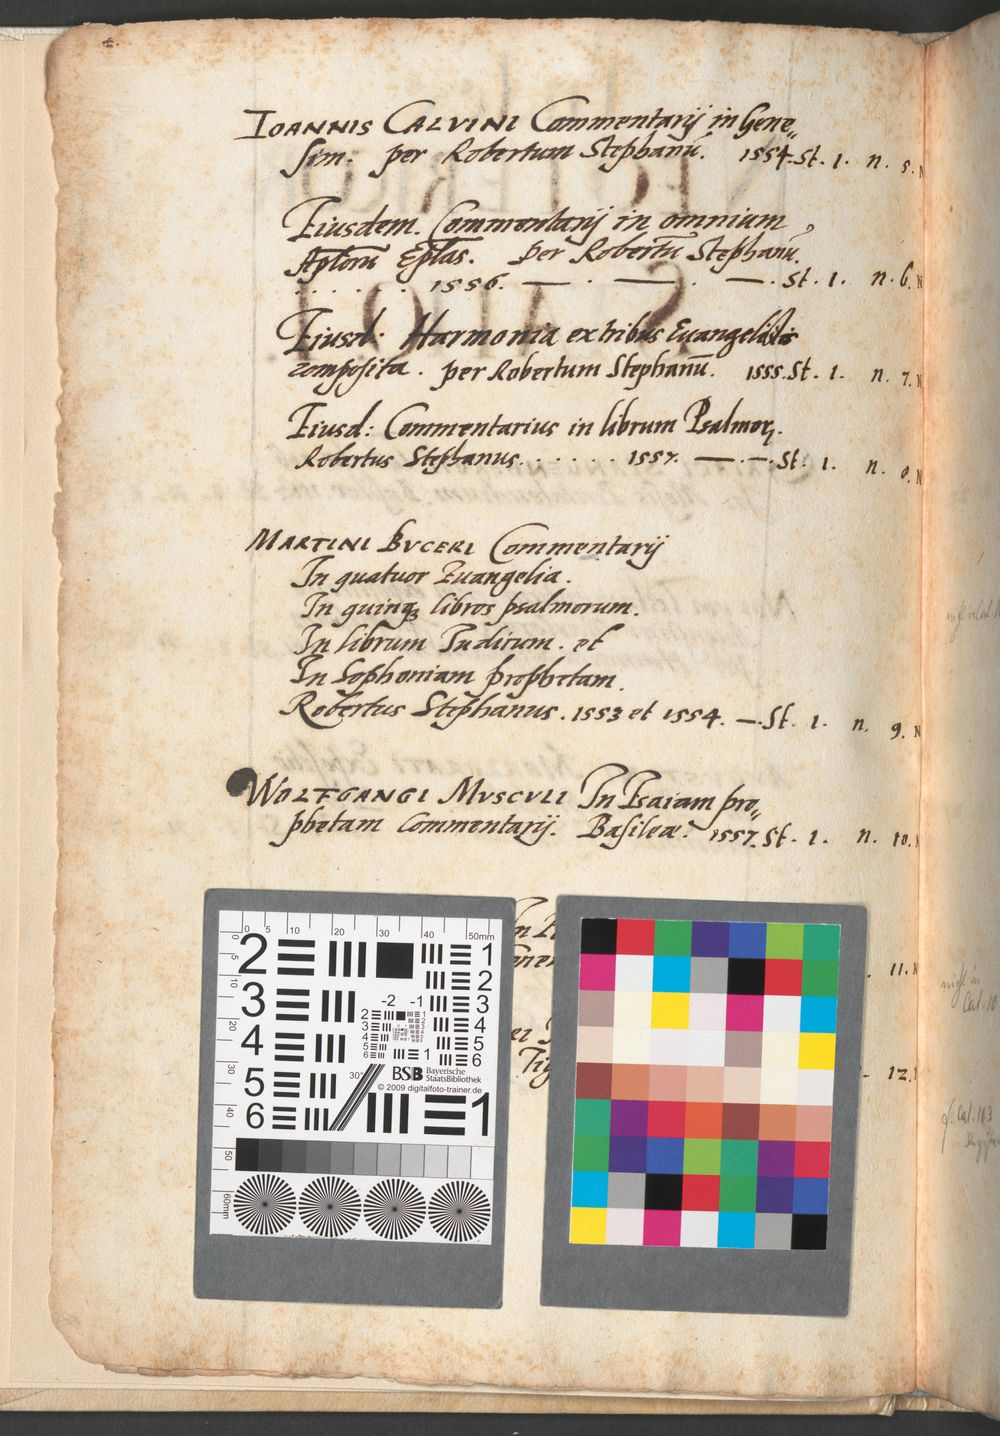 IOANNIS CALVINI Commentarij in Gene„
sim. per Robertum Stephanū. 1554. St. 1. n. 5. N
Eiusdem. Commentarij in omnium
Aplorū Eplas. Per Robertū Stephanū.
. . . . . 1556. — . — . — . St. 1. n. 6. N
Eiusd: Harmonia ex tribus Euangelistis
composita. per Robertum Stephanū. 1555. St. 1. n. 7. N
Eiusd: Commentarius in librum Psalmorꝝ.
Robertus Stephanus. . . . . . 1557. — . — . St. 1. n. 8. N
MARTINI BVCERI Commentarij
In quatuor Euangelia.
In quinqꝫ libros psalmorum.
In librum Iudicum. et
In Sophoniam prophetam.
Robertus Stephanus. 1553 et 1554. — . St. 1. n. 9. N
WOLFGANGI MVSCVLI In Esaiam pro„
phetam Commentarij. Basileæ. 1557. St. 1. n. 10.
. 11. N
- 12.
nicht in
Cat. 10
cf. Cat. 103
0 5 10 20 30 40 50mm
0 5 10 20 30 40 50 60mm
2 3 4 5 6
1 2 3 4 5 6
-2 -1
2 3 4 5 6
1
30°
BSB Bayerische
StaatsBibliothek
© 2009 digitalfoto-trainer.de
1